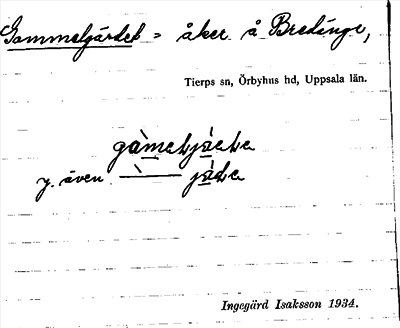 Gammelgärdet = åker å Bredänge,
Tierps sn, Örbyhus hd, Uppsala län.
y. även
Ingegärd Isaksson 1934.